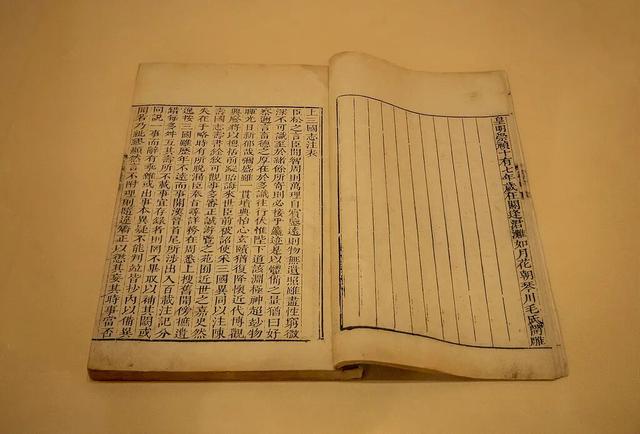 皇明崇禎十有七年歲在閼逢涒灘如月花朝琴川毛氏開雕
上三國志注表
臣松之言臣聞智周則萬理自賓鑒遠則物無遺照雖盡性窮微
深不可識至於緒餘所寄則必接乎麤迹是以體備之量猶曰好
察邇言畜德之厚在於多識往行伏惟陛下道該淵極神超妙物
暉光日新郁哉彌盛雖一貫墳典怡心玄賾猶復降懷近代博觀
興廢將以總括前蹤貽誨來世臣前被詔使采三國異同以注陳
壽國志壽書銓敘可觀事多審正誠游覽之苑囿近世之嘉史然
失在于略時有所脫漏臣奉旨尋詳務在周悉上搜舊聞傍摭遺
逸按三國雖歷年不遠而事關漢晉首尾所涉出入百載注記分
錯每多舛互其壽所不載事宜存錄者則罔不畢取以補其闕或
同說一事而辭有乖雜或出事本異疑不能判並皆抄內以備異
聞若乃紕繆顯然言不附理則隨違矯正以懲其妄其時事當否